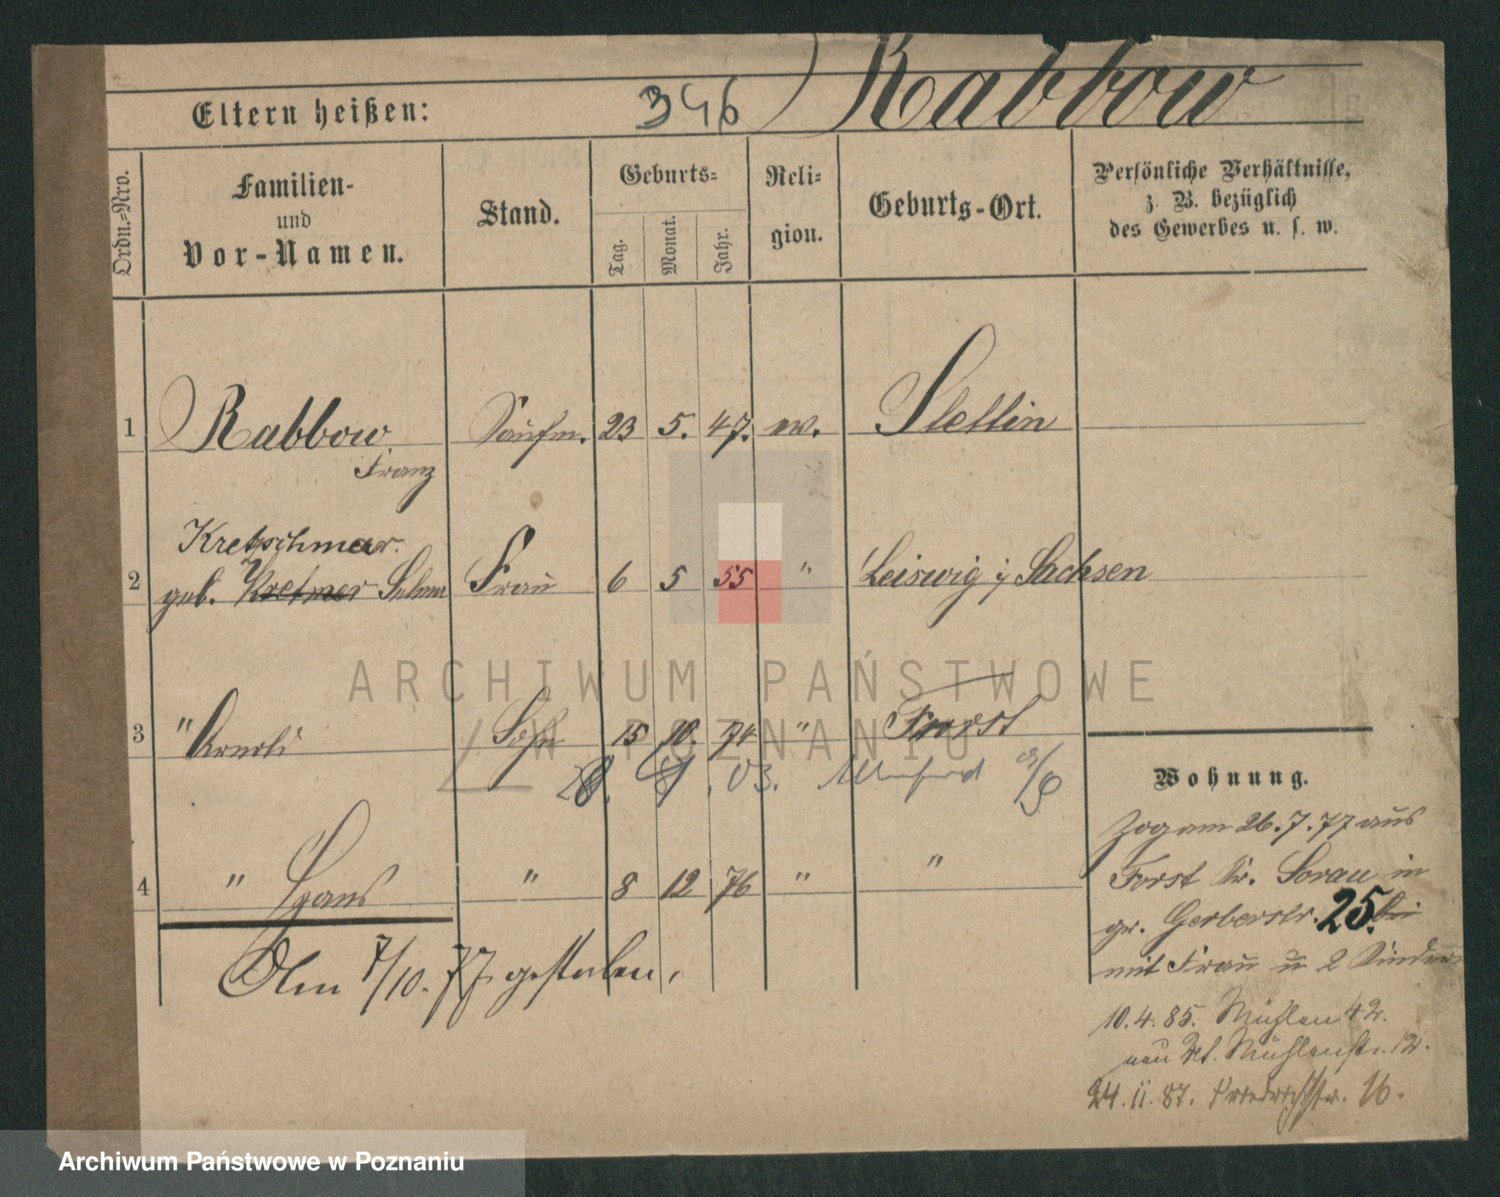 Rabbow
Eltern heißen: 346
Ordn.=Nro. Familien- und Vor-Namen. Stand. Geburts= Tag. Monat. Jahr. Reli= gion. Geburts-Ort. Persönliche Verhältnisse, z. B. bezüglich des Gewerbes u. s. w.
1 Rabbow Kaufm. 23 5. 47. ev. Stettin
Franz
Kretschmar.
2 geb. Kretmer Selma Frau 6 5 55 " Leiswig i/ Sachsen
3 " Arnold Sohn 15 10. 74 " Forst
03.
4 " Hans " 8 12 76 " "
Am 7/10. 77 gestorben.
Wohnung.
Zog am 26.7.77 aus
Forst Kr. Sorau in
gr. Gerberstr. 25. bei
mit Frau u 2 Kindern
10.4.85. Mühlen 42.
neu Mühlenstr. 12.
24.11.87. Friedrichstr. 16.
ARCHIWUM PAŃSTWOWE
W POZNANIU
Archiwum Państwowe w Poznaniu